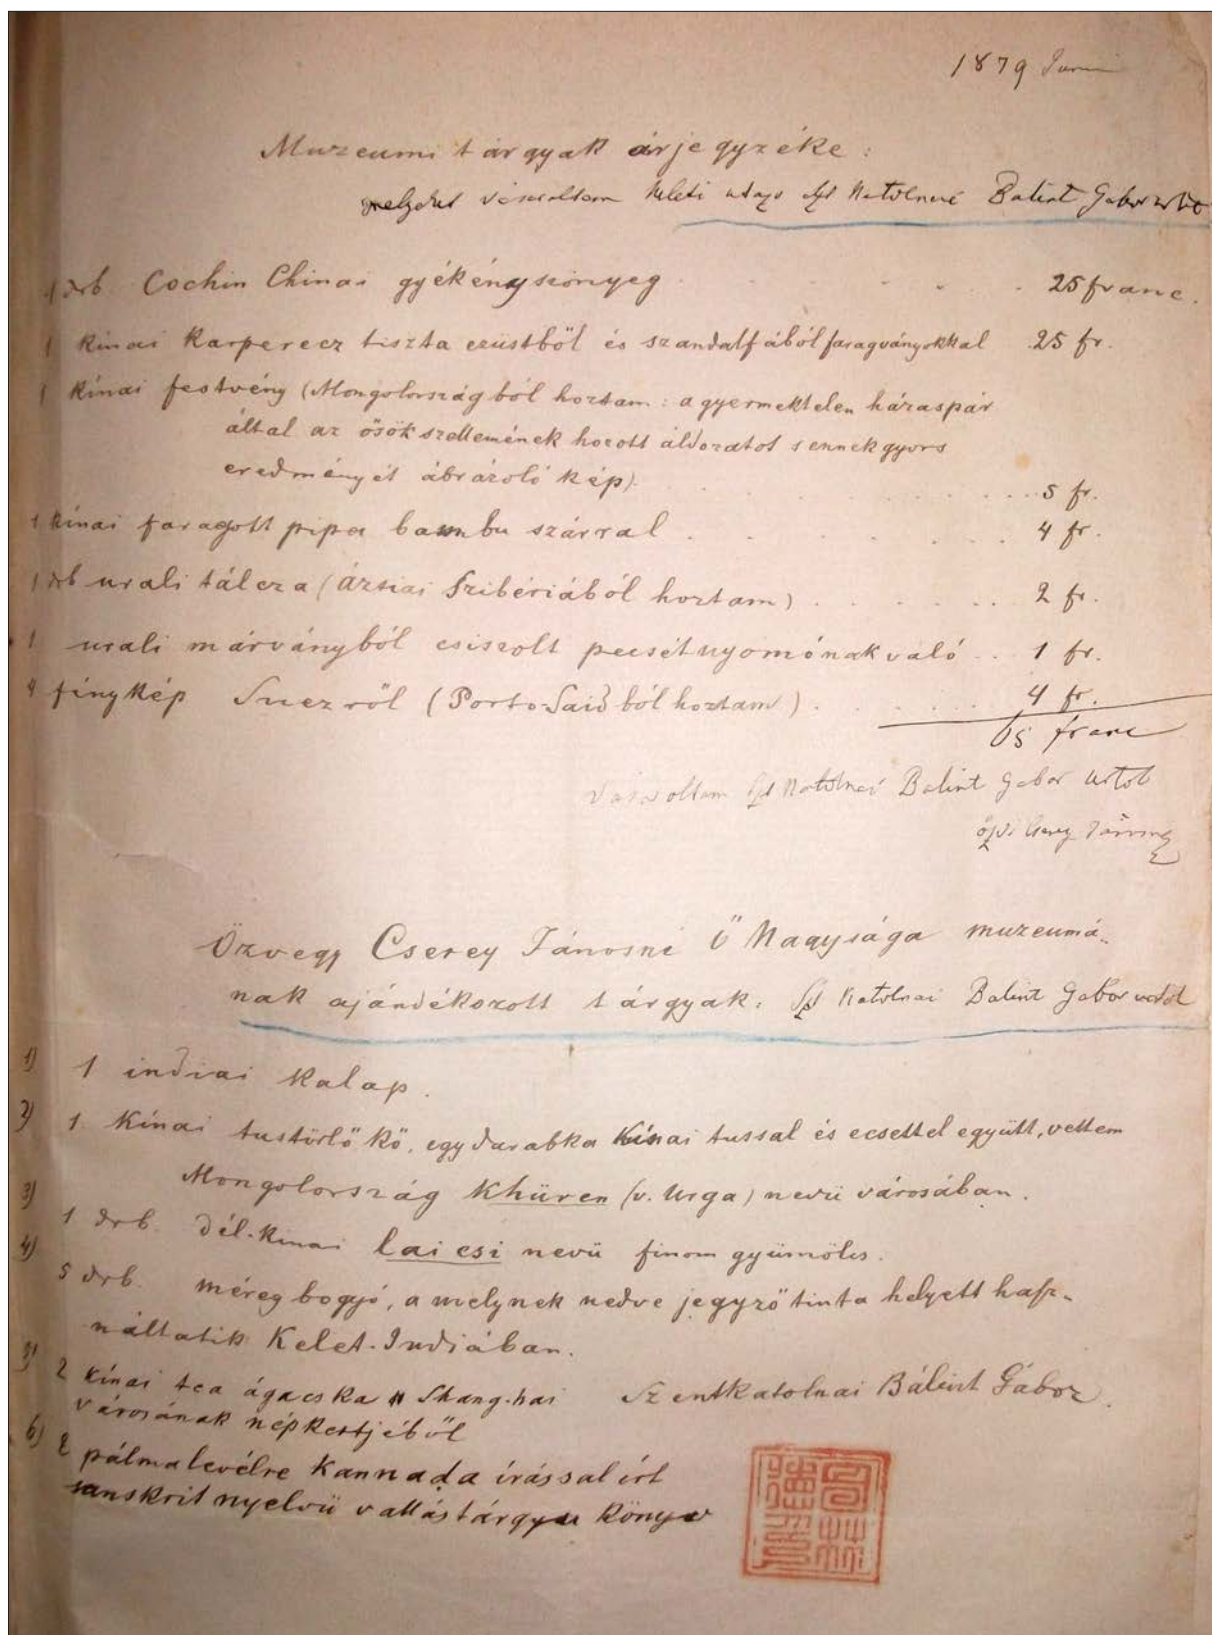 1879 Juni
Muzeumi tárgyak árjegyzéke:
melyeket vásároltam keleti utazo Katolnai Balint Gabor
1 drb. Cochin Chinai gyékényszőnyeg . . . . 25 franc.
1 kínai karperecz tiszta ezüstből és szandalfából faragványokkal 25 fr.
1 kínai festvény (Mongolországból hoztam: a gyermektelen házaspár
által az ősök szellemének hozott áldozatot s ennek gyors
eredményét ábrázoló kép). . . . . 5 fr.
1 kínai faragott pipa bambu szárral . . . . 4 fr.
1 drb urali tálcza (ázsiai Szibériából hoztam) . . . . 2 fr.
1 urali márványból csiszolt pecsétnyomónak való . . 1 fr.
4 fénykép Suezről (Porto-Saidból hoztam) . . . . 4 fr.
65 franc
Vasaroltam Katolnai Balint Gabor urtol
özv. Cserey Jánosné
Özvegy Cserey Jánosné Ő Nagysága muzeumá-
nak ajándékozott tárgyak: Katolnai Balint Gabor urtol
1) 1 indiai kalap.
2) 1. Kínai tustörlő kő, egy darabka kínai tussal és ecsettel együtt, vettem
Mongolország Khüren (v. Urga) nevü városában.
3) 1 drb. dél-kinai lai csi nevü finom gyümölcs.
4) 5 drb. méreg bogyó, a melynek nedve jegyző tinta helyett hasz-
náltatik Kelet-Indiában.
5) 2 kínai tea ágacska Shang-hai
városának népkertjéből
Szentkatolnai Bálint Gábor.
6) 2 pálmalevélre Kannada írással írt
sanskrit nyelvü vallástárgyu könyv